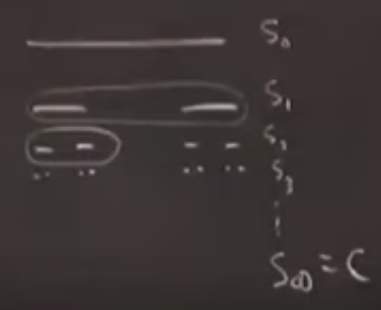 S₀
S₁
S₂
S₃
⋮
S∞ = C